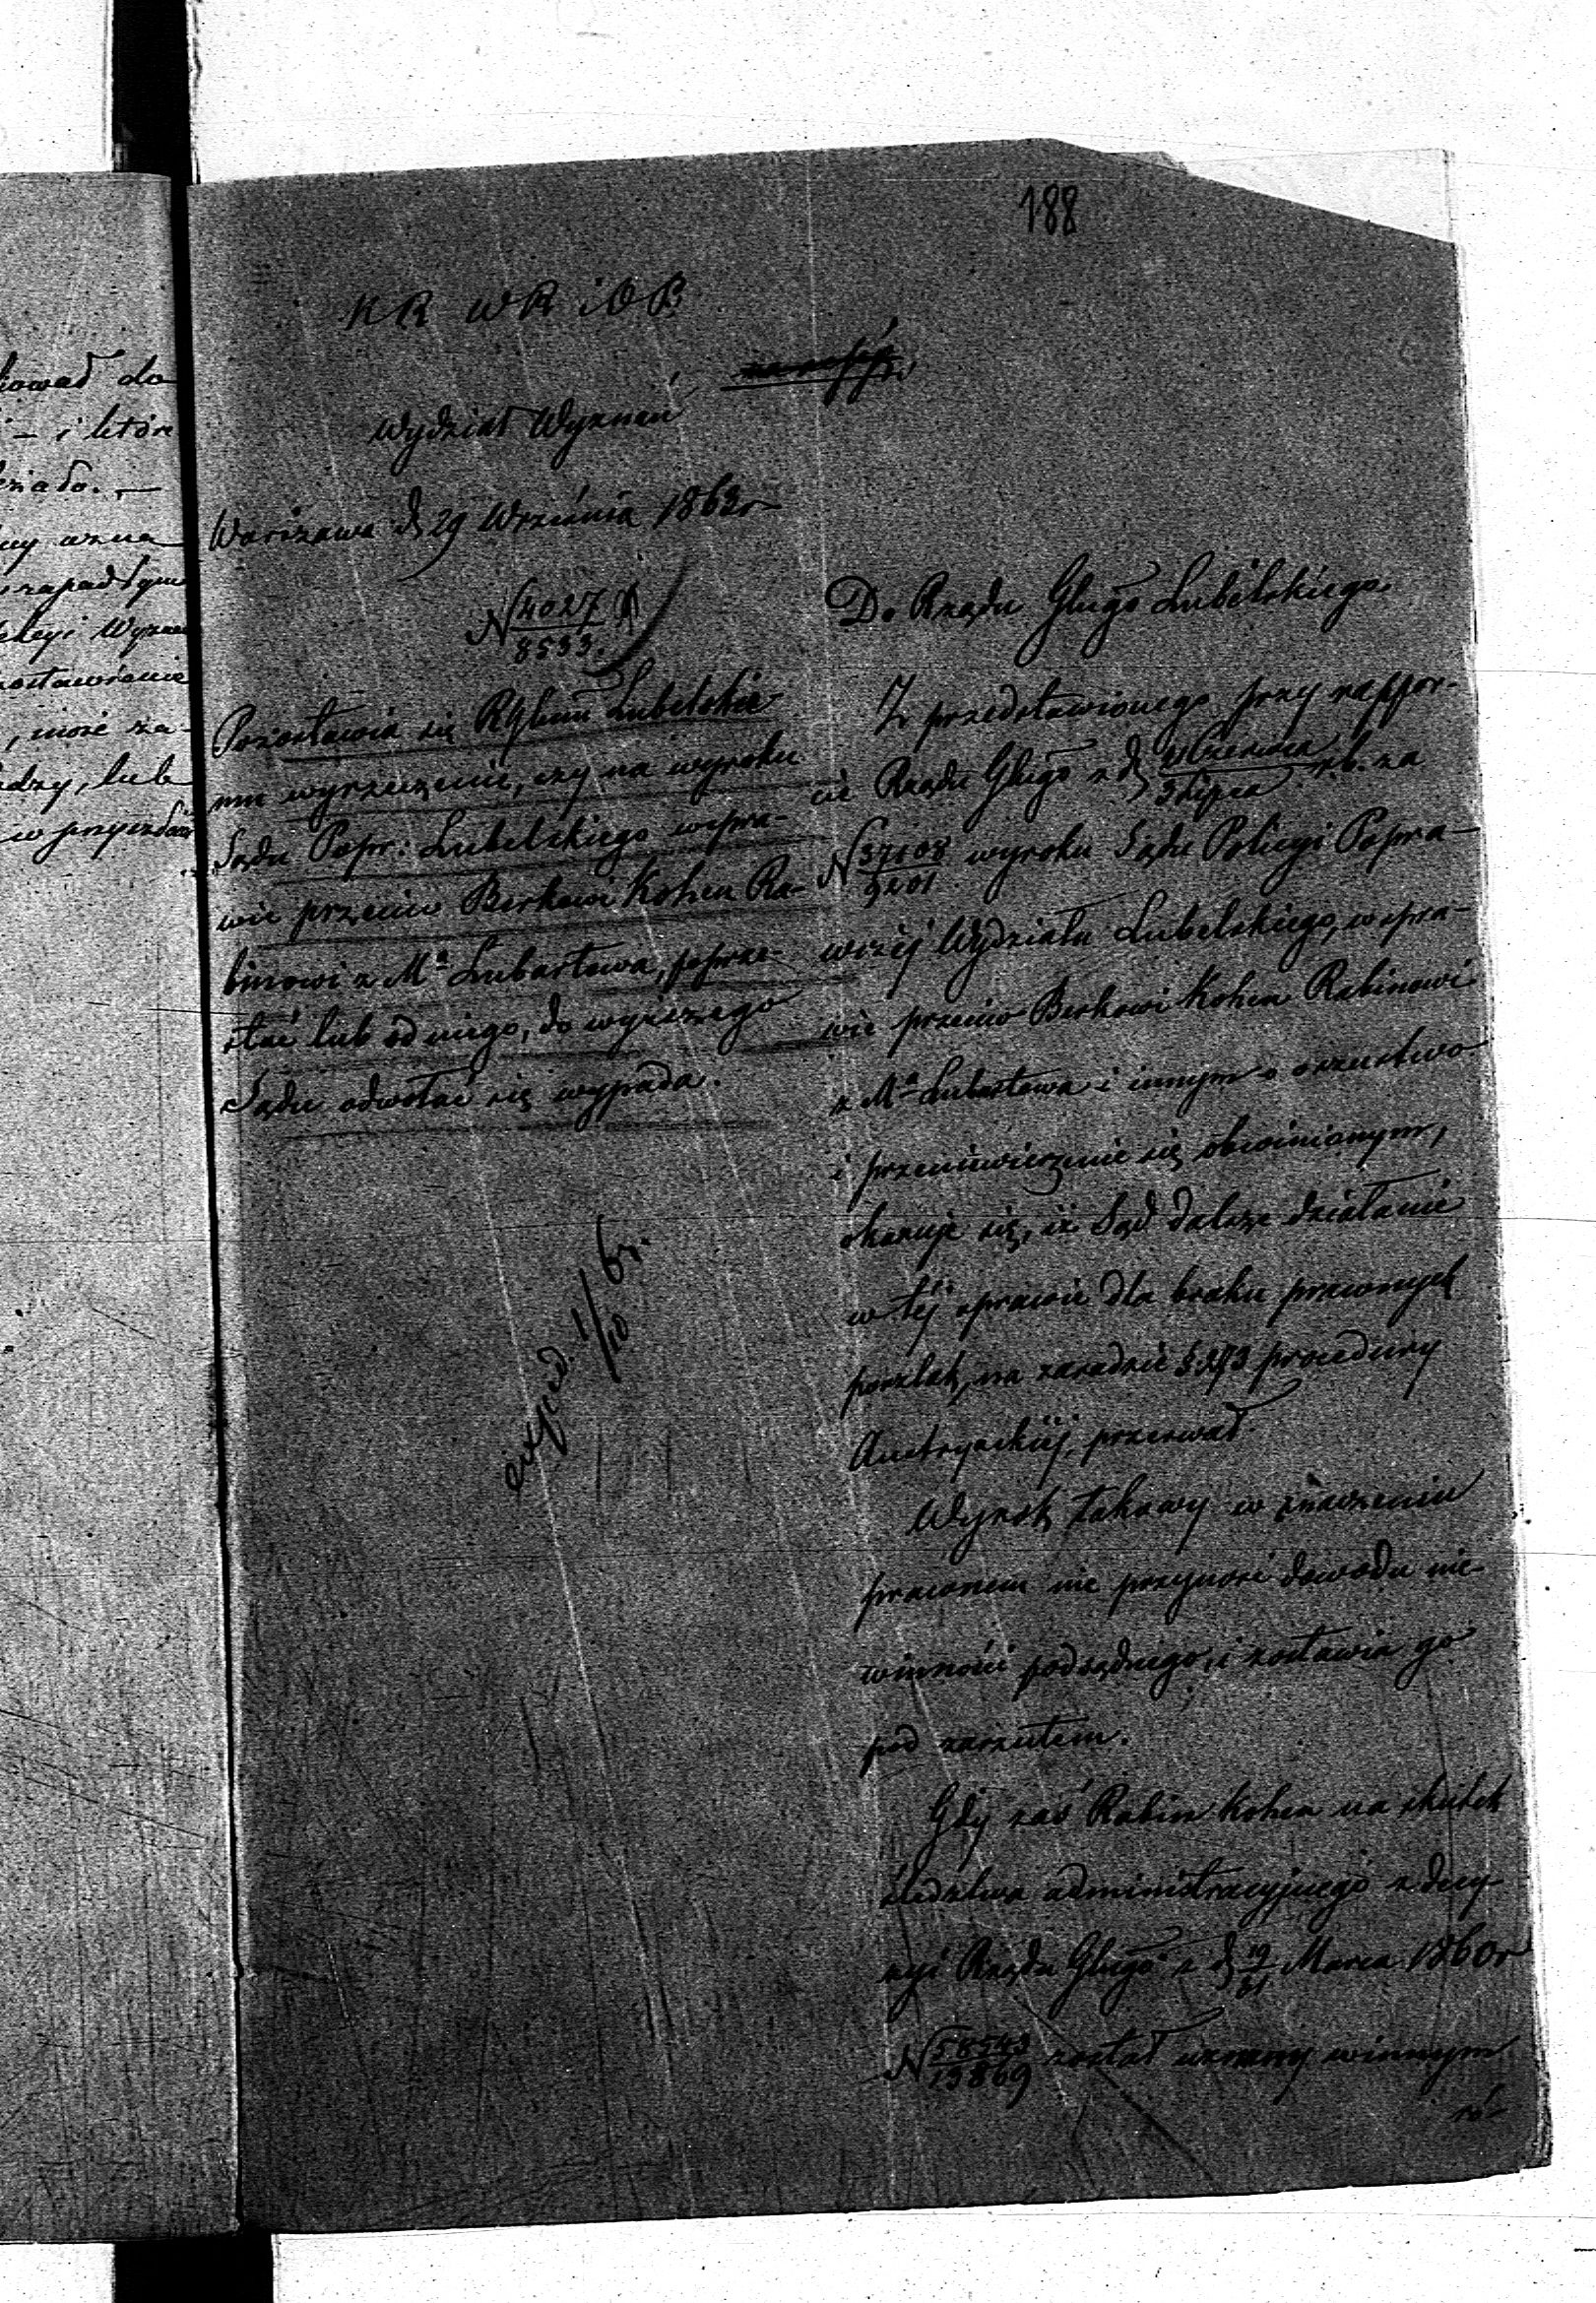 188
KR WR i OP.
Wydział Wyznań
Warszawa d 29 Września 1863r
N 4027
8533.
Pozostawia się RGbmu Lubelskie-
mu wyrzeczenie, czy na wyroku
Sądu Popr: Lubelskiego w spra-
wie przeciw Berkowi Kohen Ra-
binowi z Mª Lubartowa, poprze-
stać lub od niego, do wyższego
Sądu odwołać się wypada.
exped. 1/10 63.
Do Rządu Glngo Lubelskiego
Z przedstawionego przy rappor-
cie Rządu Glngo z d Czerwca
3 Lipca r. b. za
N 37108
9201 wyroku Sądu Policyi Popra-
wczej Wydziału Lubelskiego, w spra-
wie przeciw Berkowi Kohen Rabinowi
z Mª Lubartowa i innym o oszustwo
i przeniewierzenie się obwinionym,
okazuje się, iż Sąd dalsze działanie
w tej sprawie dla braku prawnych
poszlak, na zasadzie § procedury
Austryackiej, przerwał.
Wyrok takowy w znaczeniu
prawnem nie przynosi dowodu nie-
winności podsądnego, i zostawia go
pod zarzutem.
Gdy zaś Rabin Kohen na skutek
śledztwa administracyjnego z decy-
zyi Rządu Glngo z d 19/31 Marca 1860r
N 58543
13869 został uznany winnym
liował do
- i które
działo. -
zapadłym
Wyzna
pozostawienie
, może za-
lub
w przyszłości